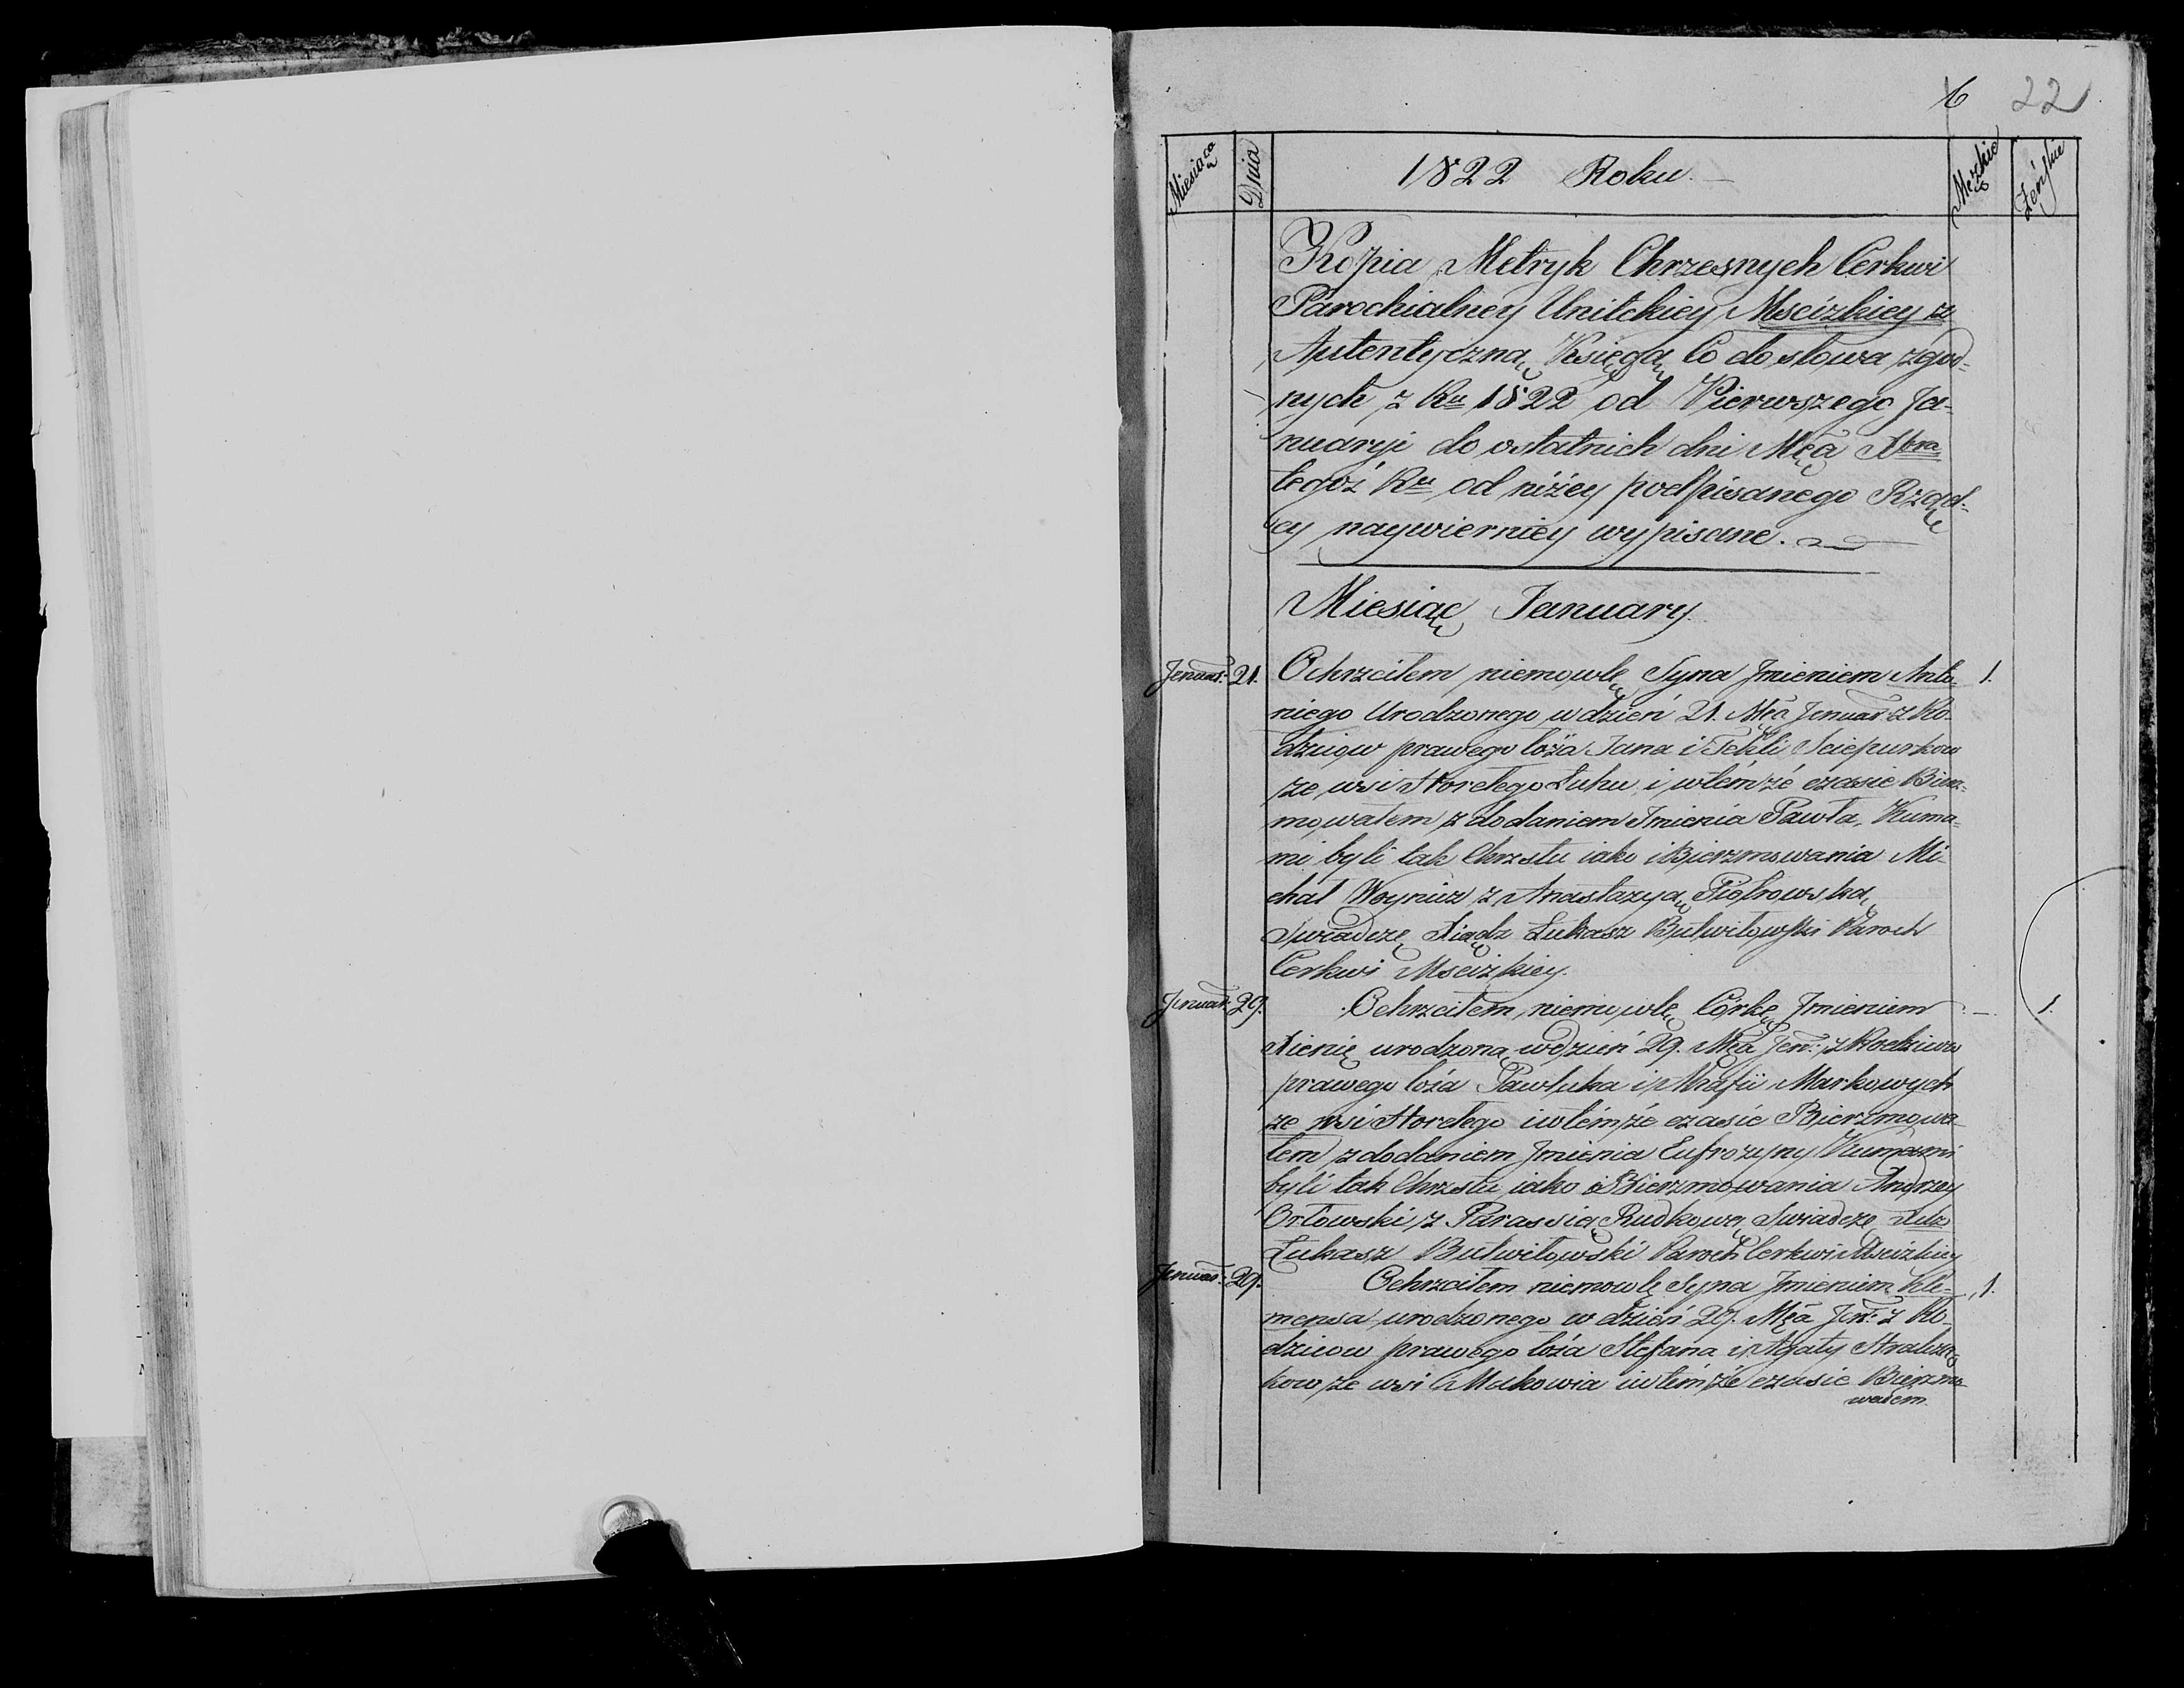 6 22
Miesiąca Dnia 1822 Roku. Męzkie Żeńskie
Kopia Metryk Chrzesnych Cerkwi
Parochialney Unitckiey Mscizkiey z
Autentyczną Księgą Co do słowa zgod=
nych z Ru 1822 od Pierwszego Ja-
nuaryi do ostatnich dni Mca Xbra
tegoż Ru od niżey podpisanego Rząd-
cy naywierniey wypisane.
Miesiąc January.
Januar: 21. Ochrzciłem niemowlę Syna Jmieniem Anto- 1.
niego Urodzonego w dzień 21. Mca Januar z Ro-
dziców prawego łoża Jana i Tekli Sciepurkow
ze wsi Horełego Łuhu i wtémże czasie Bierz=
mowałem z dodaniem Jmienia Pawła, Kuma=
mi byli tak Chrzstu iako i Bierzmowania Mi-
chał Woynicz z Anastazyą Piotrowską
Swiadczę Xiądz Łukasz Butwiłowski Paroch
Cerkwi Mscizkiey.
Januar: 29. Ochrzciłem niemowlę Córkę Jmieniem 1.
Xienię urodzoną w dzień 29. Mca Jan: z Rodziców
prawego łoża Pawluka i Marków
ze wsi Horełego i wtémże czasie Bierzmowa
łem z dodaniem Jmienia Eufrozyny Kumami
byli tak Chrzstu iako i Bierzmowania Andrzey
Orłowski z Parassią Rudkową Swiadczę
Łukasz Butwiłowski Paroch Cerkwi Mscizkiey
Januar: 29. Ochrzciłem niemowlę Syna Jmieniem Kle- 1.
mensa urodzonego w dzień 29. Mca Jan: z Ro-
dziców prawego łoża Stefana i Agaty
kow ze wsi Makowia i wtémże czasie Bierzmo
wałem